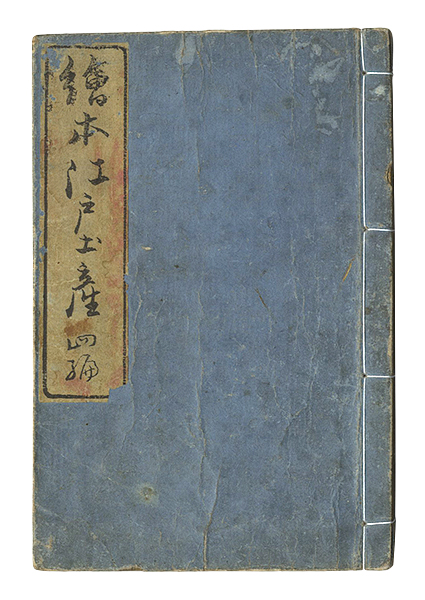 繪本江戸土産 四編